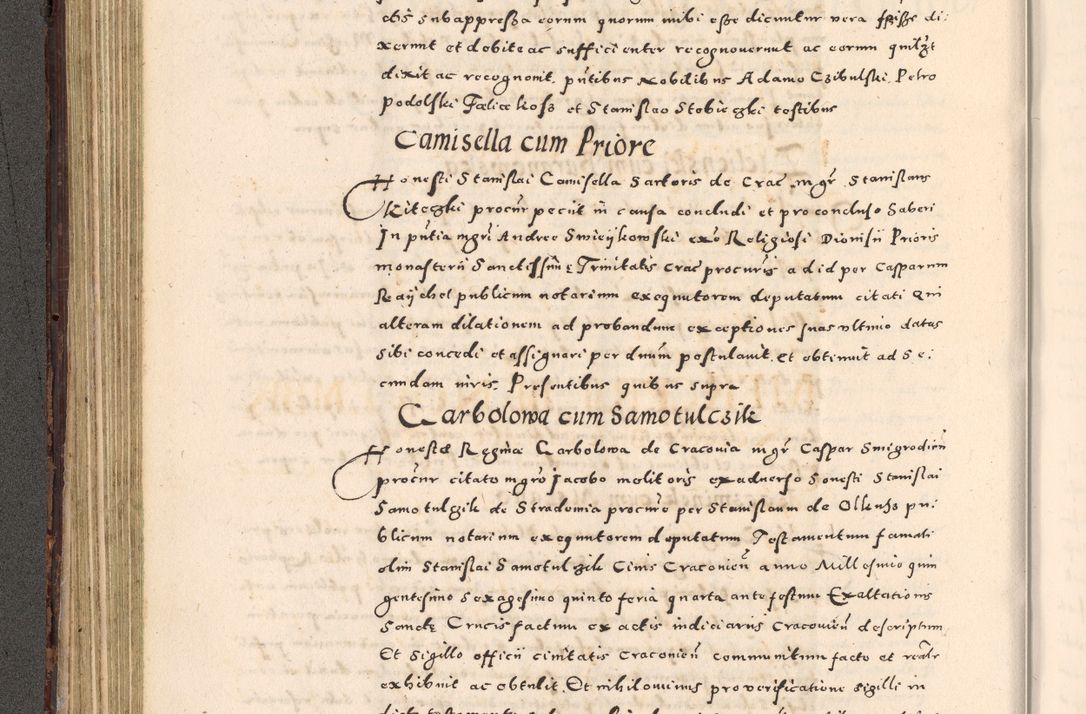 ctis subappressa eorum quorum inibi esse dicuntur vera fuisse di:
xerunt et debite ac sufficienter recognoverunt ac eorum quilzt
dixit ac recognovit. pñtibus nobilibus Adamo Czibulski, Petro
Podolski Felice koss et Stanislao Stobieczki testibus
Camisella cum Priore
Honesti Stanislai Camisella Sartoris de Crac mgr Stanislaus
Kiteczki procur peciit in causa concludi et pro concluso haberi
In pñtia mgri Andree Swieykowski exo Religiosi Dionisii Prioris
monasterii Sanctissimę Trinitatis Crac procuris ad id per Casparum
Raychel publicum notarium exequutorem deputatum citati Qui
alteram dilationem ad probandum exceptiones suas ultimo datas
sibi concedi et assignari per dnum postulavit. et obtinuit ad Se:
cundam iuris Presentibus quibus supra
Garbolowa cum Samotulczik
Honestę Reginæ Garbolowa de Cracovia mgr Caspar Smigrodien
procur citato mgro Jacobo molitoris ex adverso honesti Stanislai
Samotulczik de Stradomia procure per Stanislaum de Olkusz pu:
blicum notarium exequutorem deputatum Testamentum famati
olim Stanislai Samotulczik Civis Cracovien anno Millesimo quin
gentesimo sexagesimo quinto feria quarta ante festum Exaltationis
Sanctę Crucis factum ex actis iudiciariis Cracovien descriptum
Et Sigillo officii civitatis Cracovien communitum facto et realr
exhibuit ac obtulit. Et nihilominus pro verificatione sigilli in